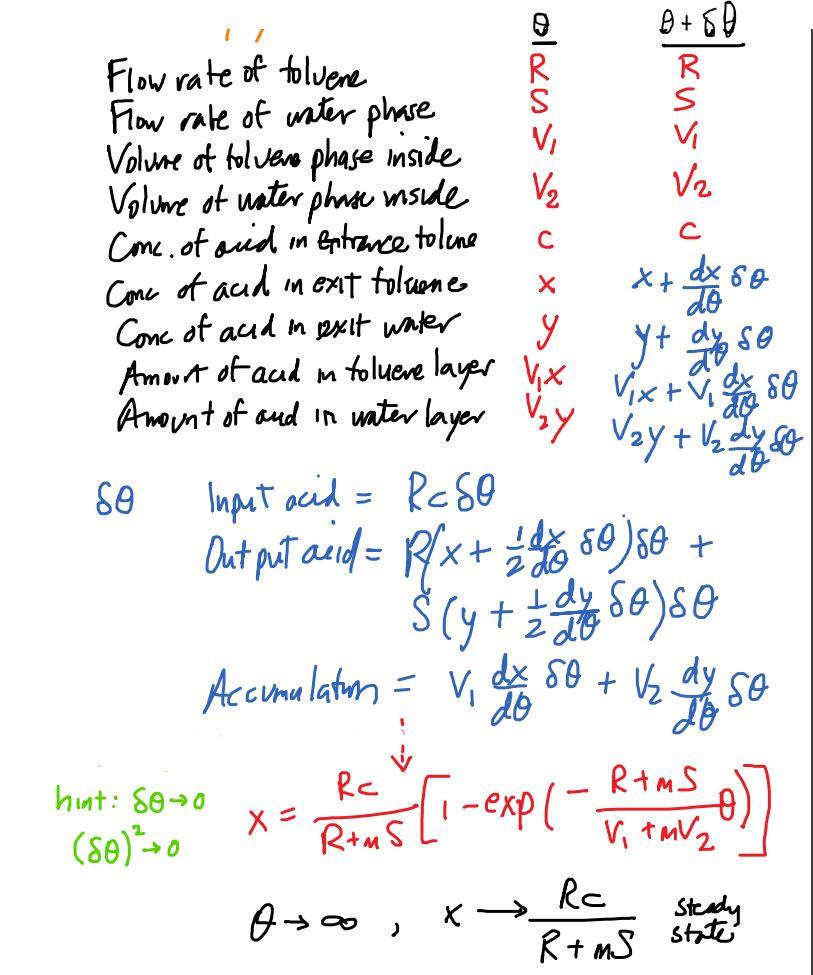 θ θ + δθ
Flow rate of toluene R R
Flow rate of water phase S S
Volume of toluene phase inside V₁ V₁
Volume of water phase inside V₂ V₂
Conc. of acid in entrance tolune c c
Conc of acid in exit toluene x x + dx/dθ δθ
Conc of acid in exit water y y + dy/dθ δθ
Amount of acid in toluene layer V₁x V₁x + V₁ dx/dθ δθ
Amount of acid in water layer V₂y V₂y + V₂ dy/dθ δθ
δθ Input acid = Rc δθ
Output acid = R(x + 1/2 dx/dθ δθ)δθ +
S(y + 1/2 dy/dθ δθ)δθ
Accumulation = V₁ dx/dθ δθ + V₂ dy/dθ δθ
hint: δθ → 0
(δθ)² → 0
x = Rc/(R+mS) [1 - exp(- (R+mS)/(V₁+mV₂) θ)]
θ → ∞, x → Rc/(R+mS) steady
state